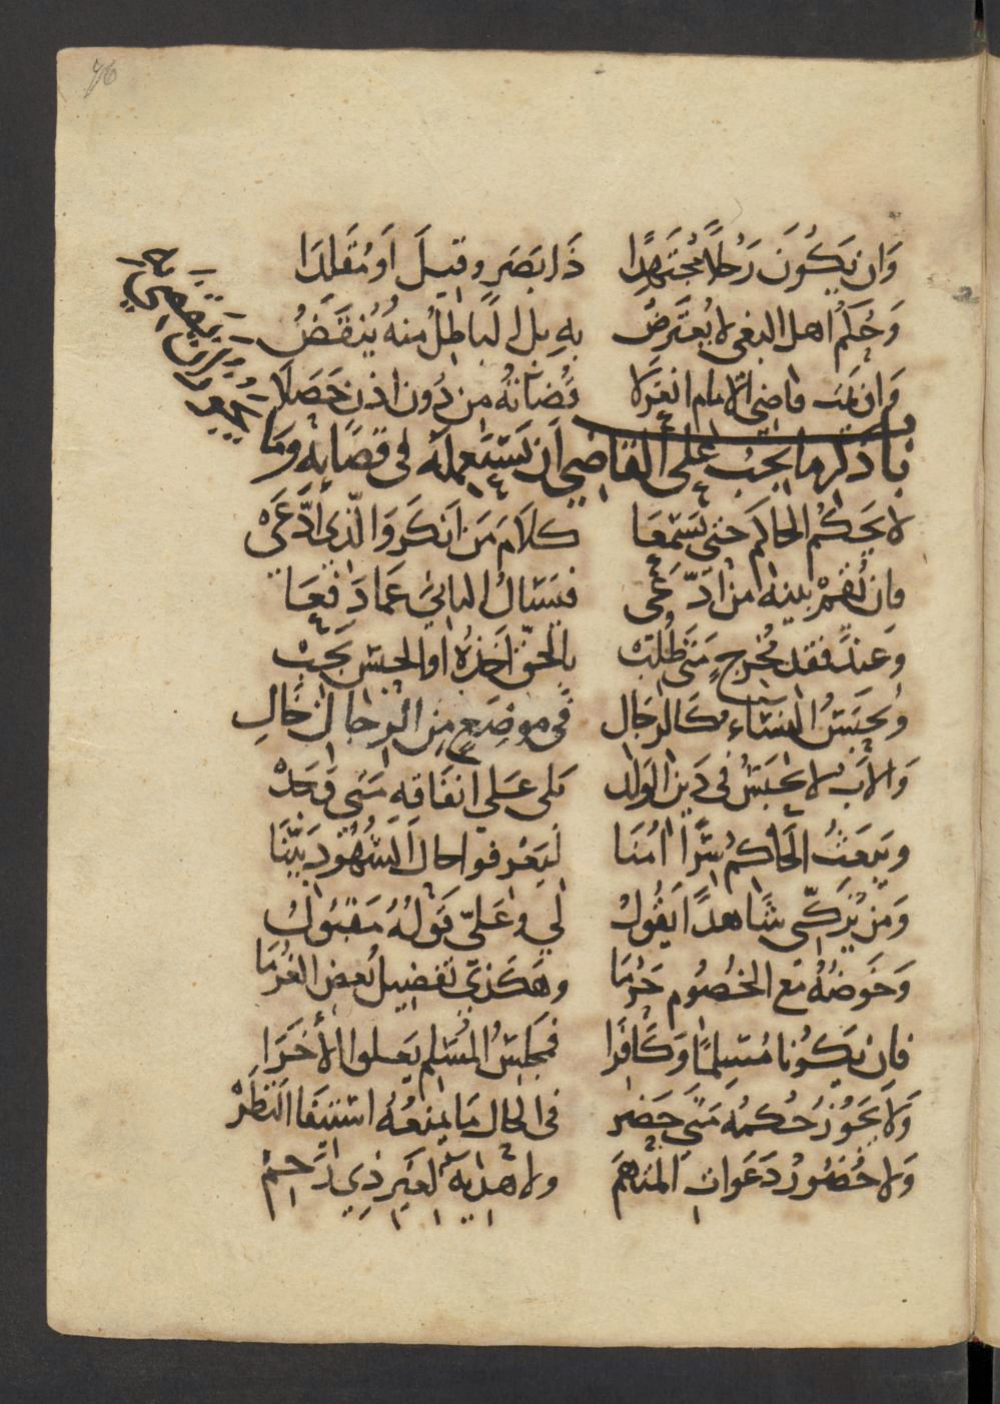 وَان يَكُونَ رَجُلاً مُجْتَهِدًا ذَا بَصَرٍ وقيلَ اَو مُقَلِّدَا
وَحُكْمُ اهل البغى لا يُعْتَرضُ بِهِ بل الباطِلُ مِنهُ يُنْقَضُ
وَان يَمُت قاضى الامام انعَزَلا قُضاتهُ من دُون اذنٍ حَصَلا
باذكر ما يجبُ على القاضي ان يستعمله فى قضايه وما
لا يَحكُم الحاكم حتى يَسْمَعَا كلامَ مَن اَنكَرَ وَالّذى ادَّعَى
فان تُقَمْ بينه من ادّعى فيسَال الباني عَما دَفعَا
وَعندَ فقد مُخرجٍ مَتى طُلبْ بالحقّ اخذهُ او الحبس يَجبْ
وَتُحبَسُ النسَاء كالرجَال فى موضعٍ مِنَ الرِجال خَالِ
وَالاَبُ لا يحبَسُ فى دَين الوَلد بَلى عَلى انفاقِهِ مَتى وَجَدْ
وَيَبعَثُ الحَاكمُ سرًّا امُنَا ليَعْرفوا حال الشهُود بَيّنَا
وَمَن يُزكّى شاهدًا يَقُولُ لي وعَليّ قَولُهُ مَقبُولُ
وَخَوضُهُ مَع الخُصُوم حَرُمَا وهَكَذى تفضيل بعض الغُرَمَا
فان يَكُونا مُسلمًا وَكَافرًا فمَجلِسُ المُسْلم يَعلوا الاخَرَا
وَلا يَجوُزُ حُكمُه مَتى حَضر فى الحال مَا يمنعُهُ استيفا النّظَرْ
وَلا حُضورُ دَعَوات المتهم ولا هَديه لغَير ذِي رَحِمْ